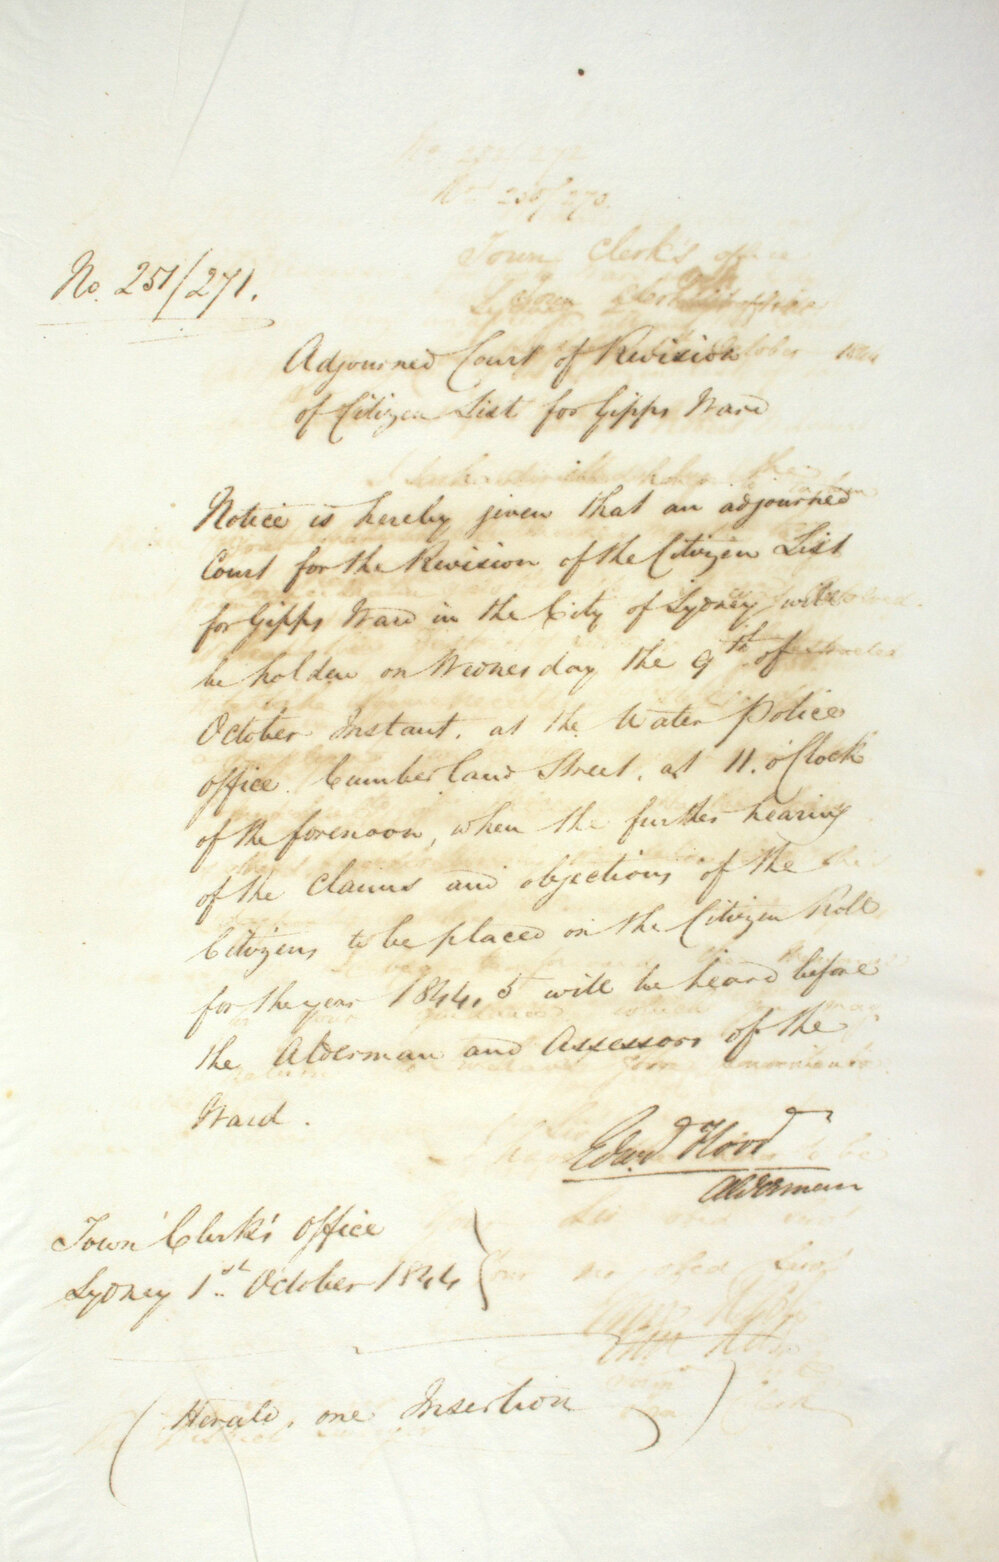 No. 251/271.
Adjourned Court of Revision
of Citizen List for Gipps Ward
Notice is hereby given that an adjourned
Court for the Revision of the Citizen List
for Gipps Ward in the City of Sydney will
be holden on Wednesday the 9th of
October Instant. at the Water Police
office. Cumberland Street, at 11. o'Clock
of the forenoon, when the further hearing
of the claims and objections of the
Citizens to be placed on the Citizen Roll
for the year 1844.5 will be heard before
the Alderman and Assessors of the
Ward.
Edwd Flood
Alderman
Town Clerk's Office
Sydney 1st October 1844
(Herald, one Insertion)